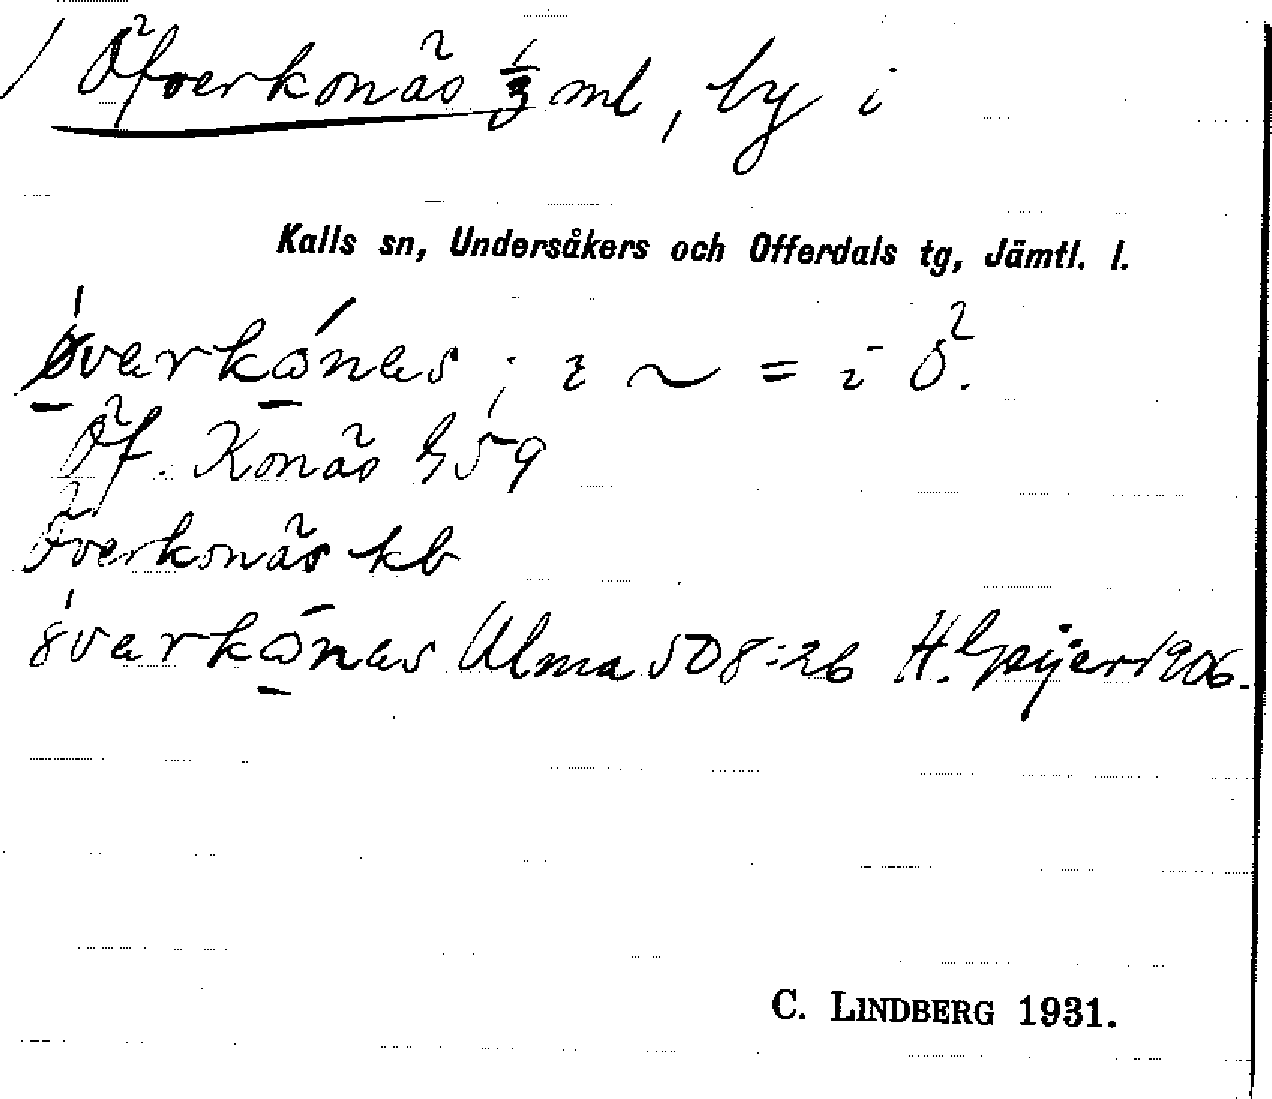 Öfverkonäs 1/3 ml, by i
Kalls sn, Undersåkers och Offerdals tg, Jämtl. l.
överkånes ; i ~ = i Ö.
Öf. Konäs h 59
Överkonäs kb
överkånes Ulma 508:26 H. Geijer 1906.
C. LINDBERG 1931.